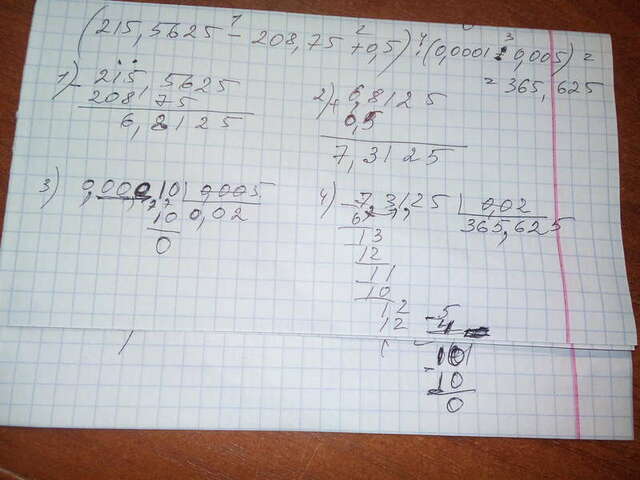 (215,5625 - 208,75 + 0,5) : (0,0001 : 0,005) =
= 365,625
1) - 215,5625
208,75
6,8125
2) + 6,8125
0,5
7,3125
3) 0,00010 | 0,005
10 0,02
0
4) - 7,3125 | 0,02
6 365,625
13
12
11
10
12
12
- 5
4
10
- 10
0